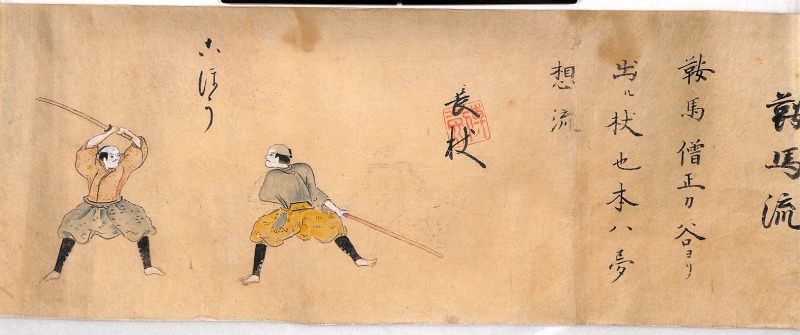 鞍馬流
鞍馬僧正ガ谷ヨリ
出ル杖也本ハ夢
想流
長杖